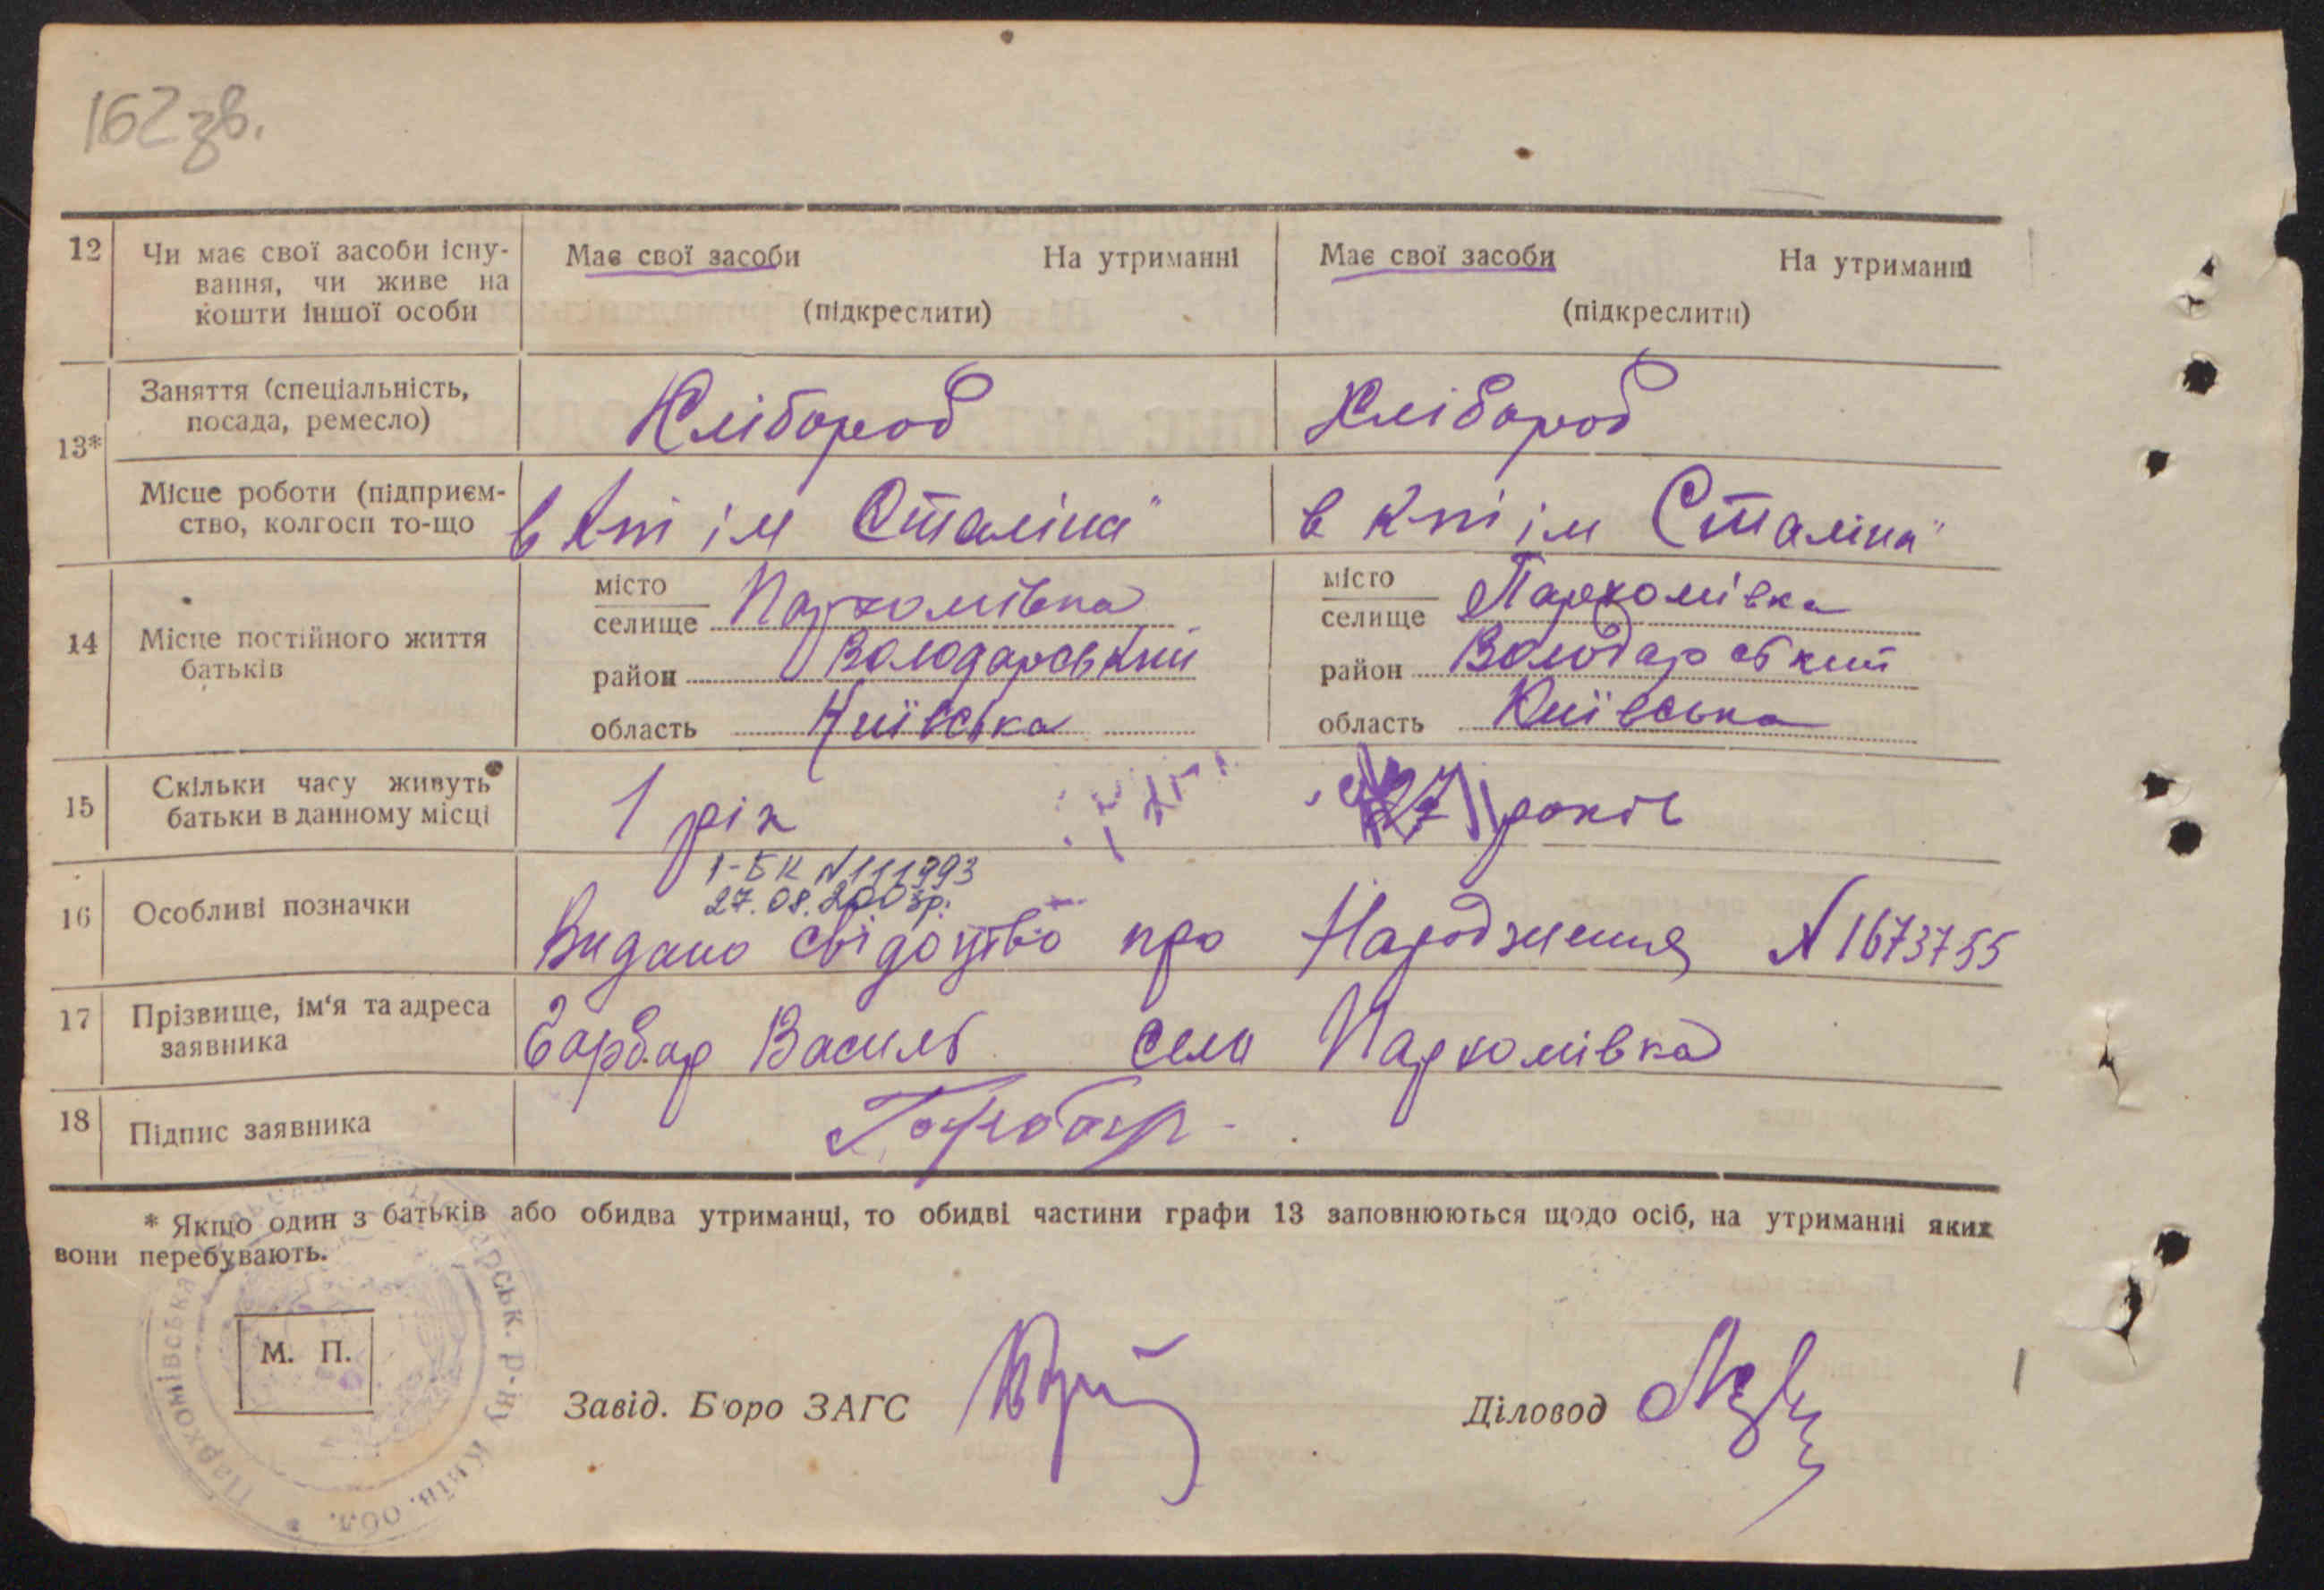 162 зв.
12 Чи має свої засоби існу- Має свої засоби На утриманні Має свої засоби На утриманні
вання, чи живе на
кошти іншої особи (підкреслити) (підкреслити)
Заняття (спеціальність, Хлібороб Хлібороб
посада, ремесло)
13*
Місце роботи (підприєм- в кпі ім Сталіна" в кпі ім Сталіна"
ство, колгосп то-що
місто Пархомівка місто Пархомівка
селище селище
14 Місце постійного життя район Володарський район Володарський
батьків
область Київська область Київська
15 Скільки часу живуть 1 рік 27 років
батьки в данному місці
1-БК №111993
27.08.2003р.
16 Особливі позначки Видано свідоцтво про Народження №1673755
17 Прізвище, ім'я та адреса Гарбар Василь село Пархомівка
заявника
18 Підпис заявника Гарбар
* Якщо один з батьків або обидва утриманці, то обидві частини графи 13 заповнюються щодо осіб, на утриманні яких
вони перебувають.
М. П.
Завід. Бюро ЗАГС Діловод
Пархомівська р-ну Київ. обл.